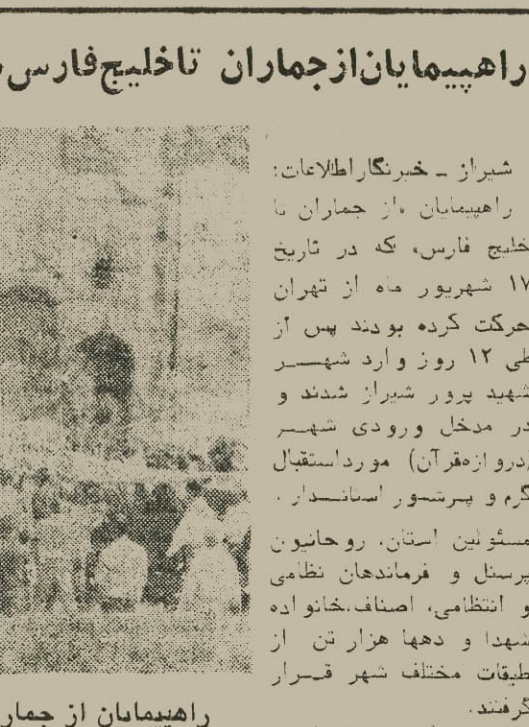 راهپیمایان از جماران تا خلیج فارس
شیراز ـ خبرنگار اطلاعات:
راهپیمایان «از جماران تا
خلیج فارس» که در تاریخ
۱۷ شهریور ماه از تهران
حرکت کرده بودند پس از
طی ۱۲ روز وارد شهـــر
شهید پرور شیراز شدند و
در مدخل ورودی شهـــر
(دروازه‌قرآن) مورد استقبال
گرم و پـرشـور استانـــدار .
مسئولین استان، روحانیون
پرسنل و فرماندهان نظامی
و انتظامی، اصناف، خانواده
شهدا و دهها هزار تن از
طبقات مختلف شهر قـــرار
گرفتند.
راهپیمایان از